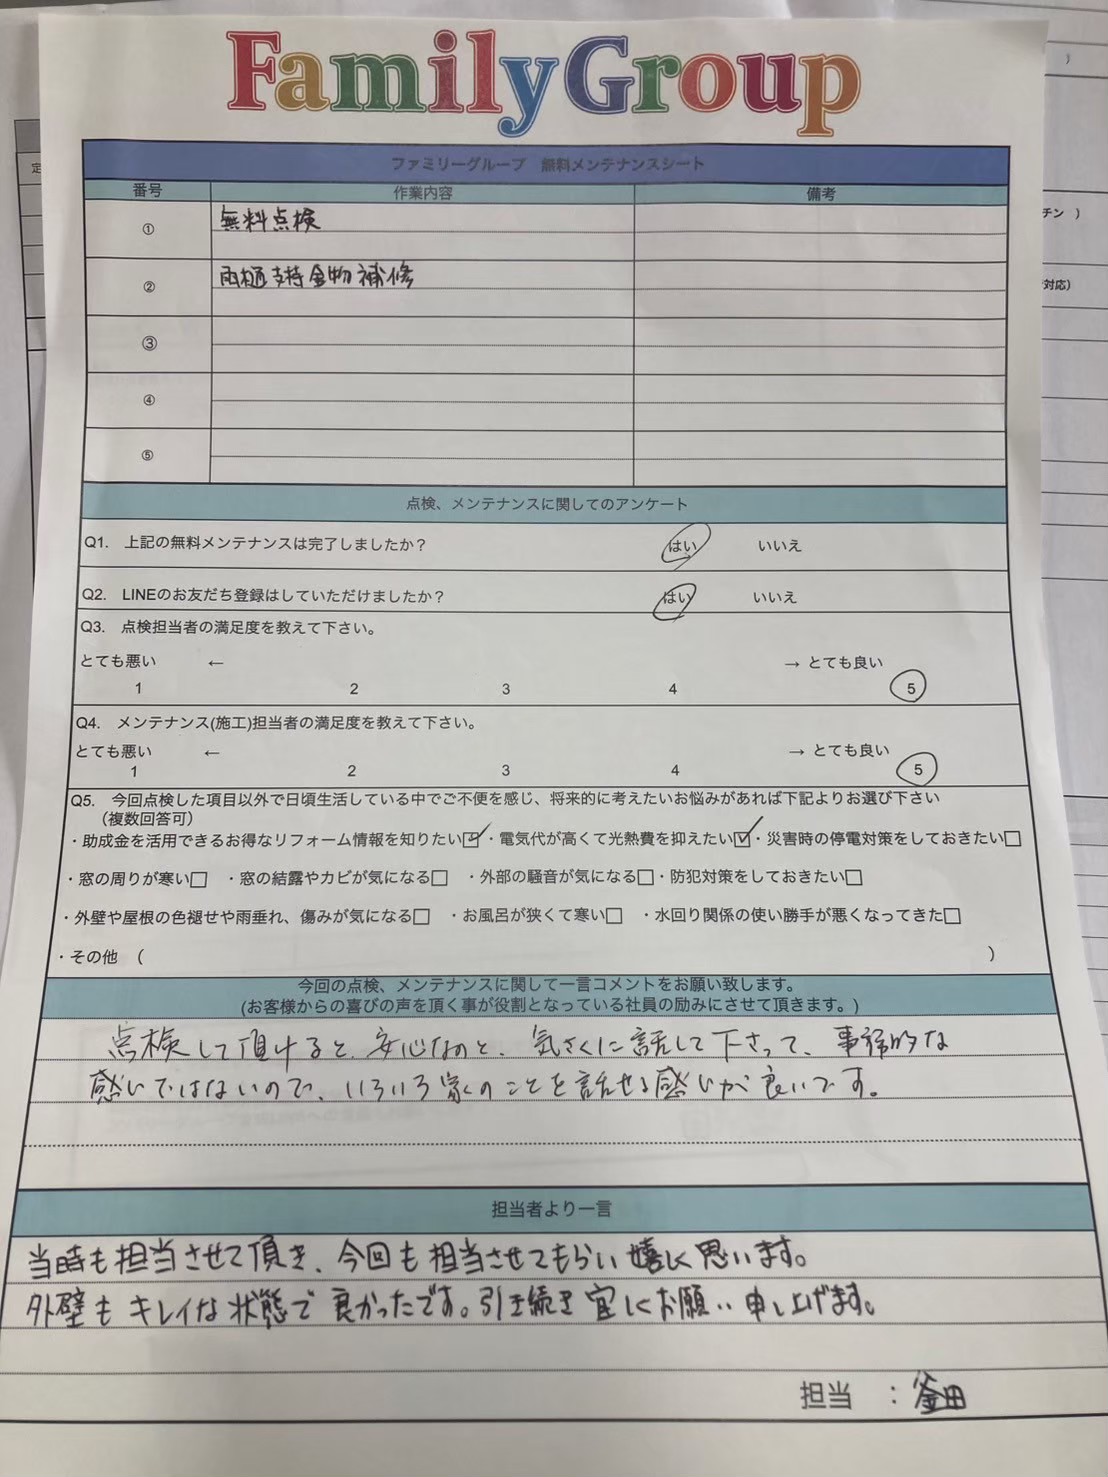 FamilyGroup
ファミリーグループ　無料メンテナンスシート
番号 作業内容 備考
① 無料点検
② 雨樋支持金物補修
③
④
⑤
点検、メンテナンスに関してのアンケート
Q1.　上記の無料メンテナンスは完了しましたか？ はい いいえ
Q2.　LINEのお友だち登録はしていただけましたか？ はい いいえ
Q3.　点検担当者の満足度を教えて下さい。
とても悪い ← → とても良い
1 2 3 4 5
Q4.　メンテナンス(施工)担当者の満足度を教えて下さい。
とても悪い ← → とても良い
1 2 3 4 5
Q5.　今回点検した項目以外で日頃生活している中でご不便を感じ、将来的に考えたいお悩みがあれば下記よりお選び下さい
（複数回答可）
・助成金を活用できるお得なリフォーム情報を知りたい☑・電気代が高くて光熱費を抑えたい☑・災害時の停電対策をしておきたい□
・窓の周りが寒い□　・窓の結露やカビが気になる□　・外部の騒音が気になる□・防犯対策をしておきたい□
・外壁や屋根の色褪せや雨垂れ、傷みが気になる□　・お風呂が狭くて寒い□　・水回り関係の使い勝手が悪くなってきた□
・その他　（　）
今回の点検、メンテナンスに関して一言コメントをお願い致します。
(お客様からの喜びの声を頂く事が役割となっている社員の励みにさせて頂きます。)
点検して頂けると、安心なのと、気さくに話して下さって、事務的な
感じではないので、いろいろ家のことを話せる感じが良いです。
担当者より一言
当時も担当させて頂き、今回も担当させてもらい嬉しく思います。
外壁もキレイな状態で良かったです。引き続き宜しくお願い申し上げます。
担当　：釜田
チン　）
対応）
定